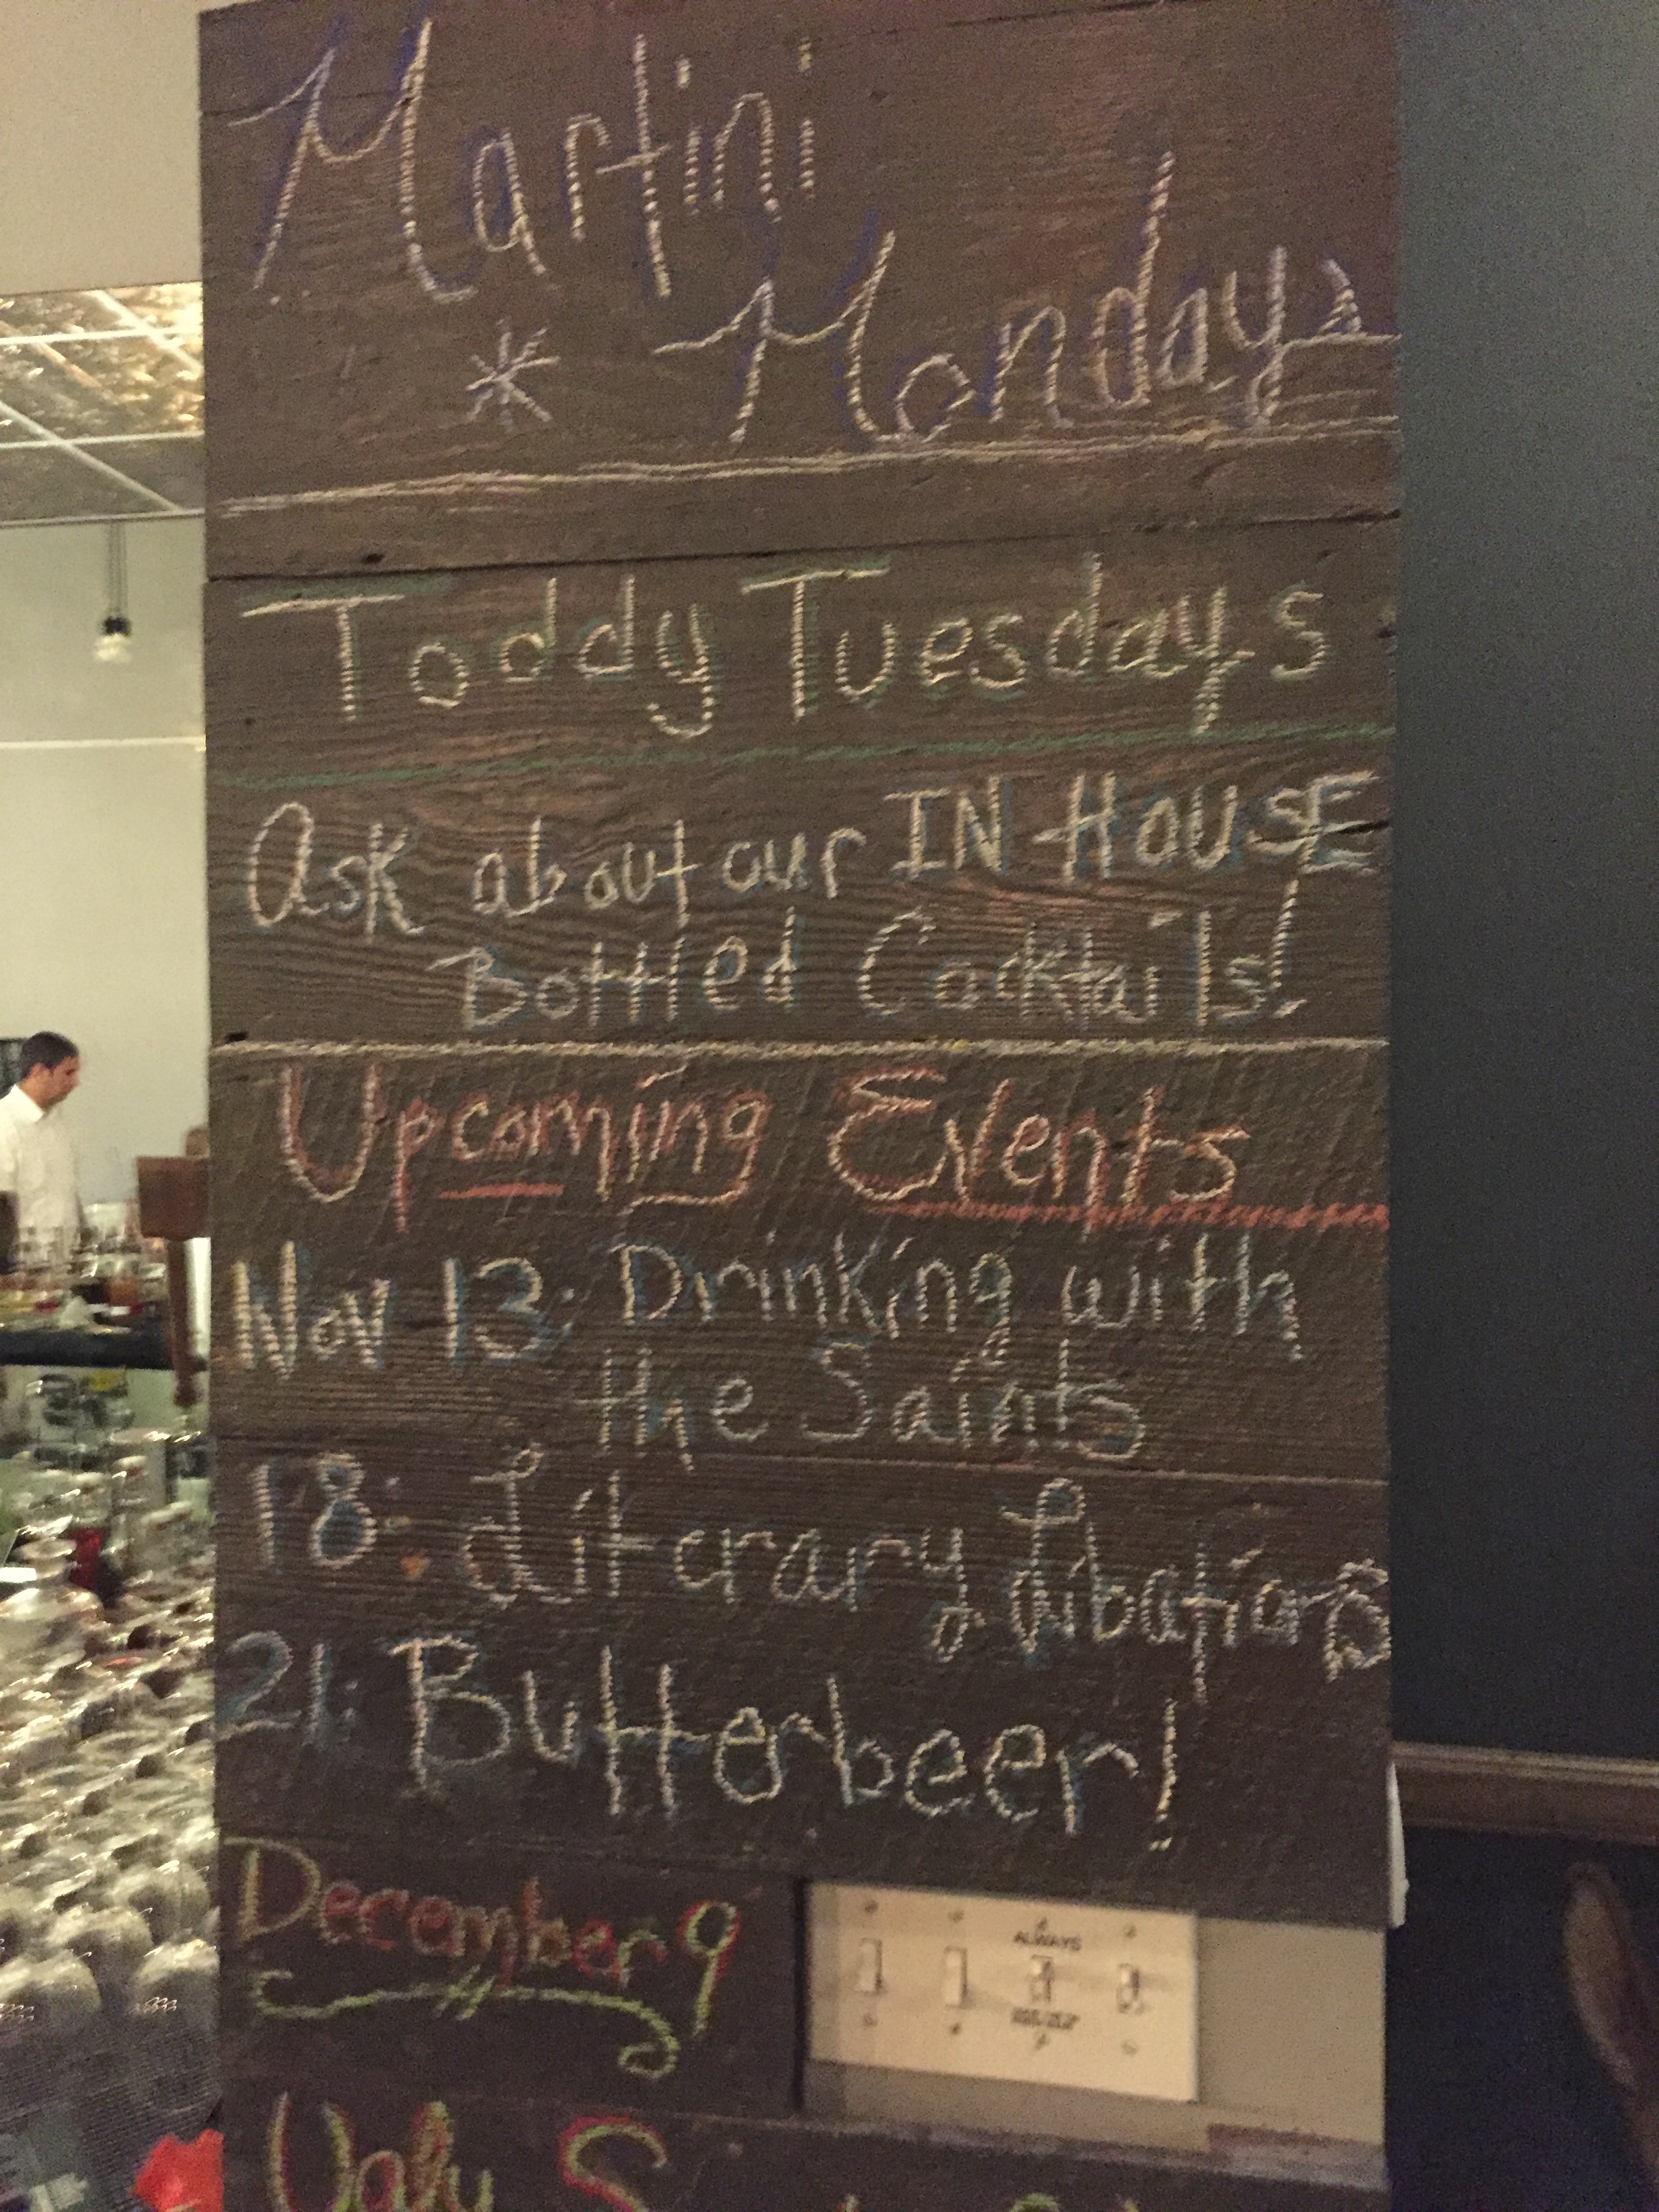 Martini
* Mondays
Toddy Tuesdays
Ask about our IN HOUSE
Bottled Cocktails!
Upcoming Events
Nov 13: Drinking with
the Saints
18: Literary Libations
21: Butterbeer!
December 9
ALWAYS
Ugly